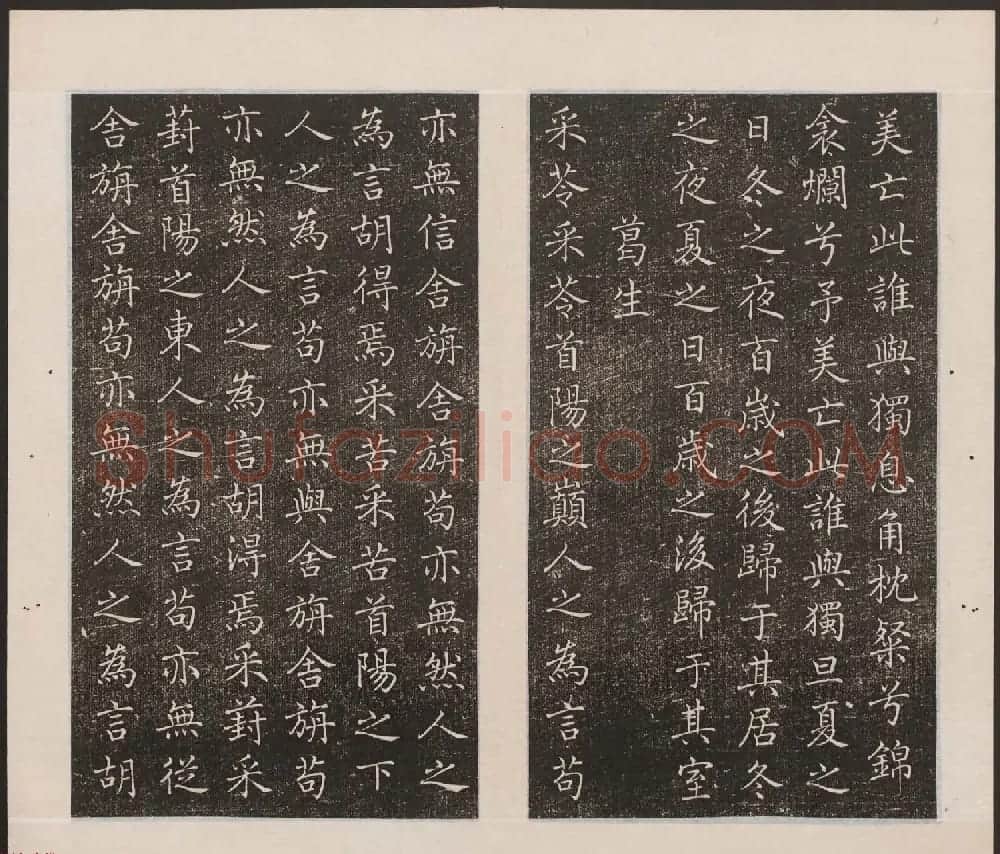 美亡此誰與獨息角枕粲兮錦
衾爛兮予美亡此誰與獨旦夏之
日冬之夜百歲之後歸于其居冬
之夜夏之日百歲之後歸于其室
葛生
采苓采苓首陽之巔人之為言苟
亦無信舍旃舍旃苟亦無然人之
為言胡得焉采苦采苦首陽之下
人之為言苟亦無與舍旃舍旃苟
亦無然人之為言胡得焉采葑采
葑首陽之東人之為言苟亦無從
舍旃舍旃苟亦無然人之為言胡
Shufaziliao.COM